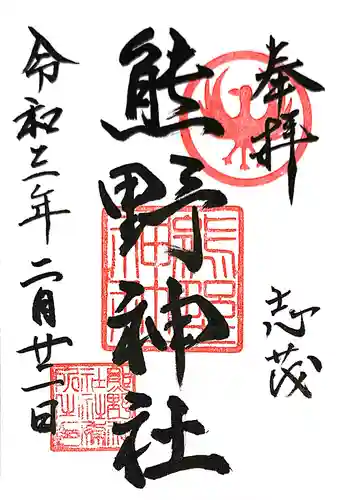 奉拝
志茂
熊野神社
令和三年二月廿一日
熊野神
社社務
所之印